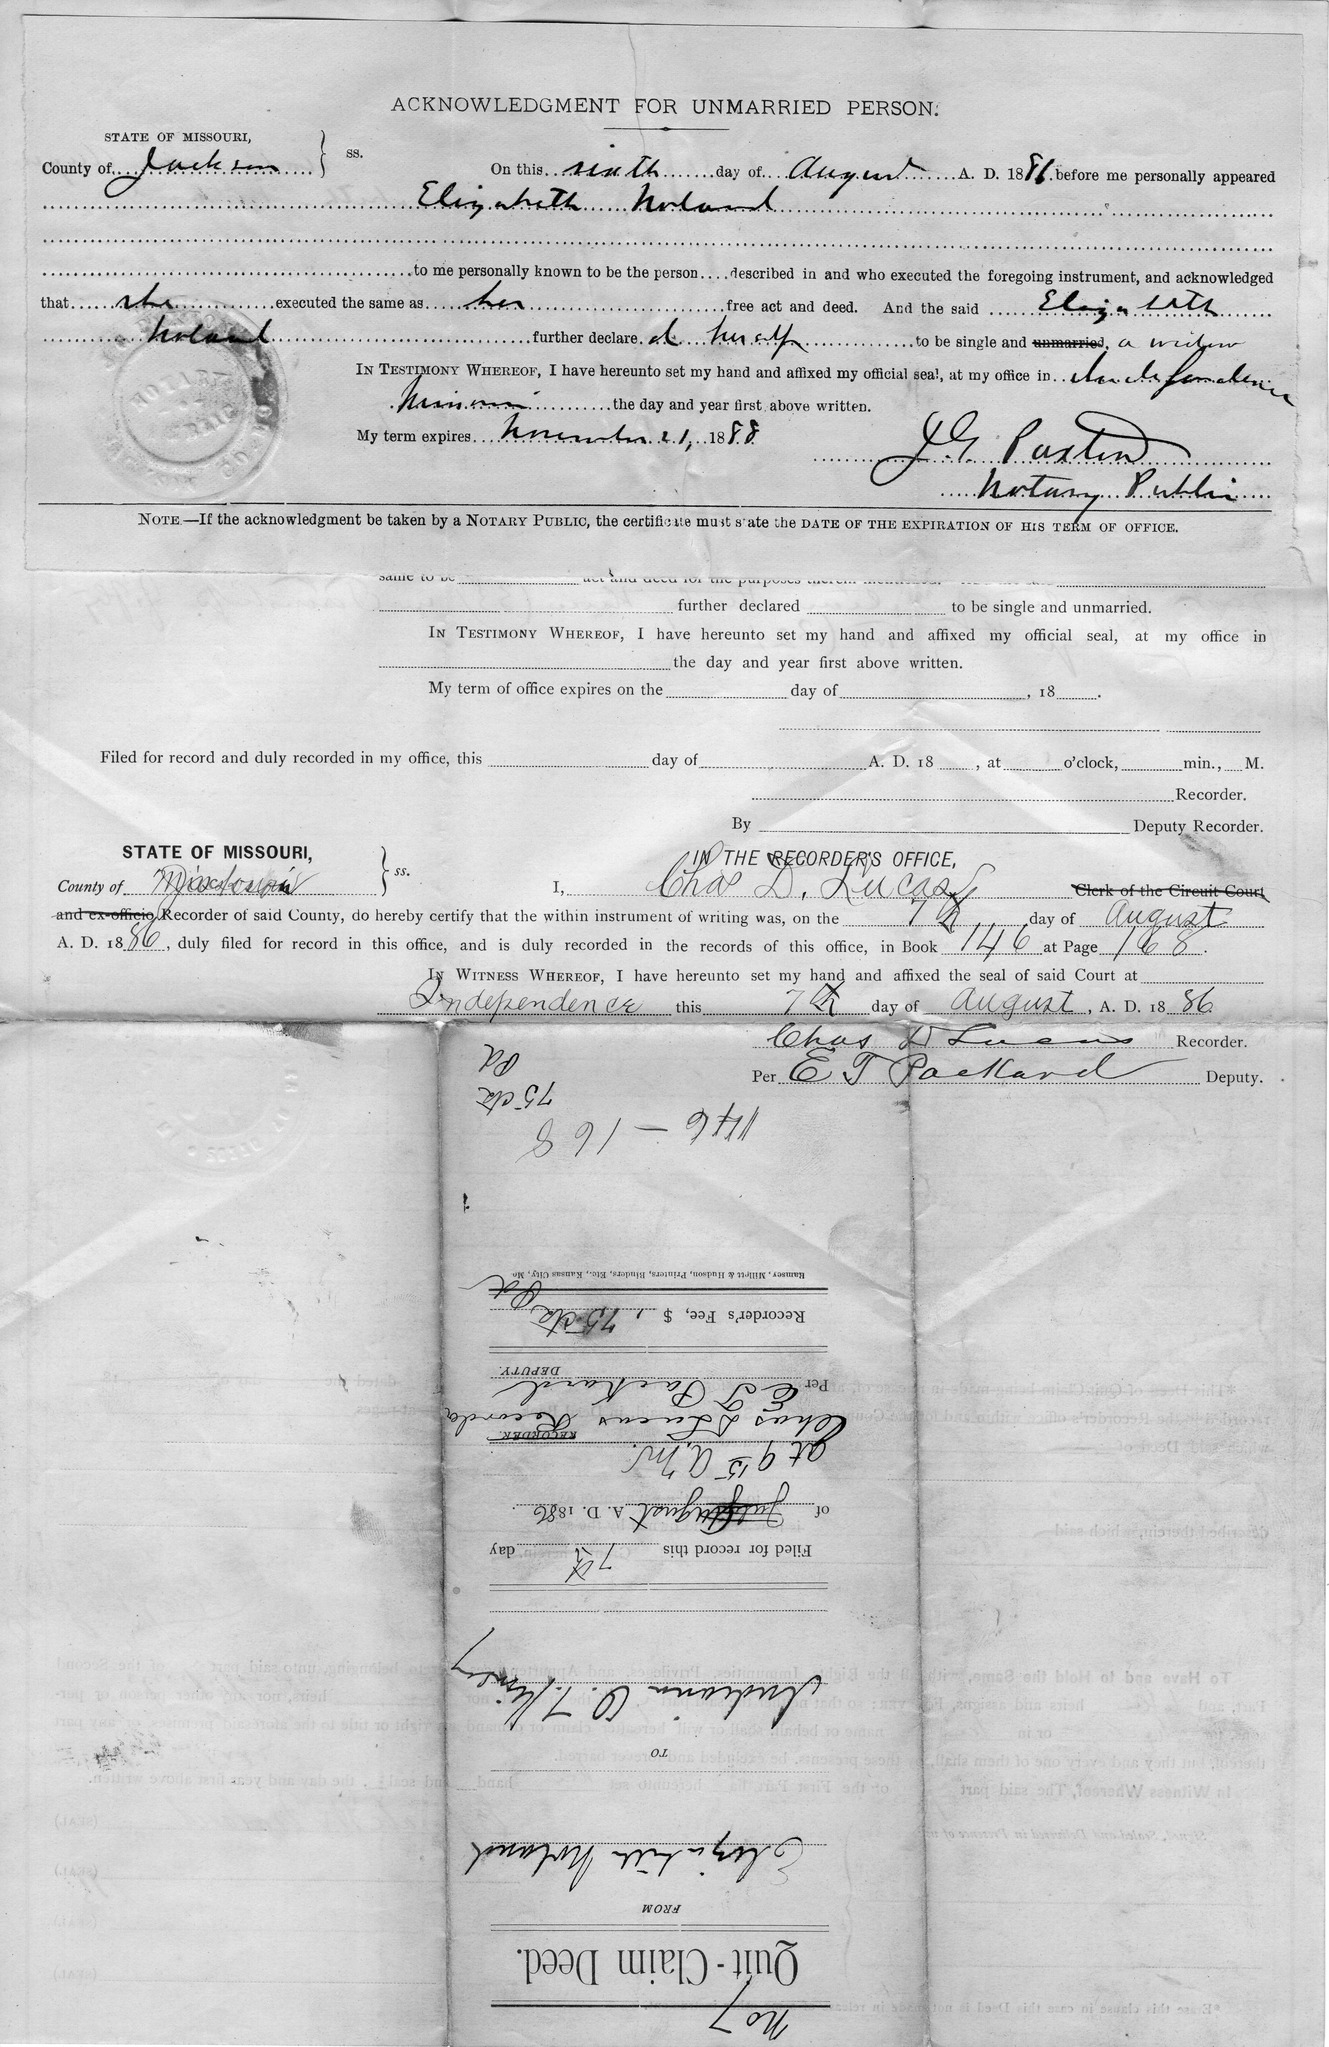 ACKNOWLEDGMENT FOR UNMARRIED PERSON.
STATE OF MISSOURI,
County of Jackson } ss. On this sixth day of August A. D. 1886 before me personally appeared
Elizabeth Noland
to me personally known to be the person described in and who executed the foregoing instrument, and acknowledged
that she executed the same as her free act and deed. And the said Elizabeth
Noland further declared herself to be single and unmarried, a widow
IN TESTIMONY WHEREOF, I have hereunto set my hand and affixed my official seal, at my office in Independence
Missouri the day and year first above written.
My term expires November 21, 1888
J. G. Paxton
Notary Public
NOTE.—If the acknowledgment be taken by a NOTARY PUBLIC, the certificate must state the DATE OF THE EXPIRATION OF HIS TERM OF OFFICE.
same to be act and deed for the purposes therein mentioned.
further declared to be single and unmarried.
IN TESTIMONY WHEREOF, I have hereunto set my hand and affixed my official seal, at my office in
the day and year first above written.
My term of office expires on the day of , 18 .
Filed for record and duly recorded in my office, this day of A. D. 18 , at o'clock, min., M.
Recorder.
By Deputy Recorder.
STATE OF MISSOURI,
County of } ss.
IN THE RECORDER'S OFFICE,
I, Chas D. Lucas, Clerk of the Circuit Court
and ex-officio Recorder of said County, do hereby certify that the within instrument of writing was, on the 7th day of August
A. D. 1886, duly filed for record in this office, and is duly recorded in the records of this office, in Book 146 at Page 168.
IN WITNESS WHEREOF, I have hereunto set my hand and affixed the seal of said Court at
Independence this 7th day of August, A. D. 1886.
Chas D Lucas Recorder.
Per E T Packard Deputy.
No 7
Quit-Claim Deed.
FROM
Elizabeth Noland
TO
Filed for record this 7th day
of July August A. D. 1886
at 9 15 A.M.
RECORDER.
Chas D Lucas Recorder
Per E T Packard
DEPUTY.
Recorder's Fee, $ 75 cts Pd
Ramsey, Millett & Hudson, Printers, Binders, Etc., Kansas City, Mo
146 – 168
75 cts
Pd